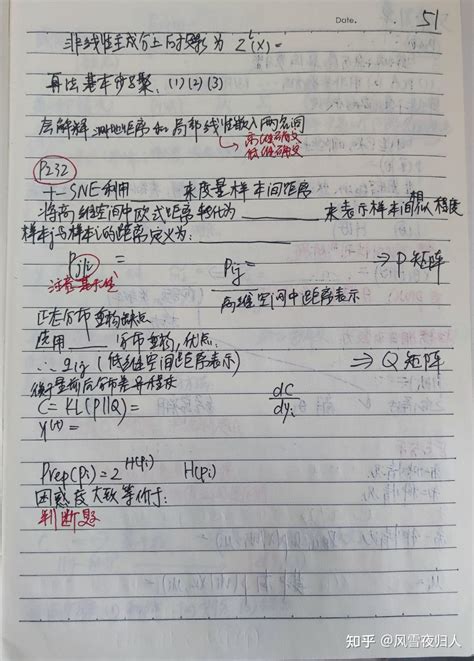 Date. 51
非线性主成分上的投影为 Z^t(X)=
算法基本步骤、(1)(2)(3)
会解释 测地距离和局部线性嵌入两名词
高维确定
低维确定
P232
t-SNE利用 来度量样本间距离
将高维空间中欧式距离转化为________来表示样本间相似程度
样本j与样本i的距离定义为:
Pj|i = Pij = ⇒ P矩阵
注意 高维空间中距离表示
正态分布重构缺点
使用____分布重构,优点.
∴ qij (低维空间距离表示) ⇒ Q矩阵
衡量前后分布差异程度
C = KL(P||Q) = dC/dyi
y^(t) =
Prep(Pi) = 2^H(Pi) H(Pi)
困惑度大致等价于:
判断题
知乎 @风雪夜归人